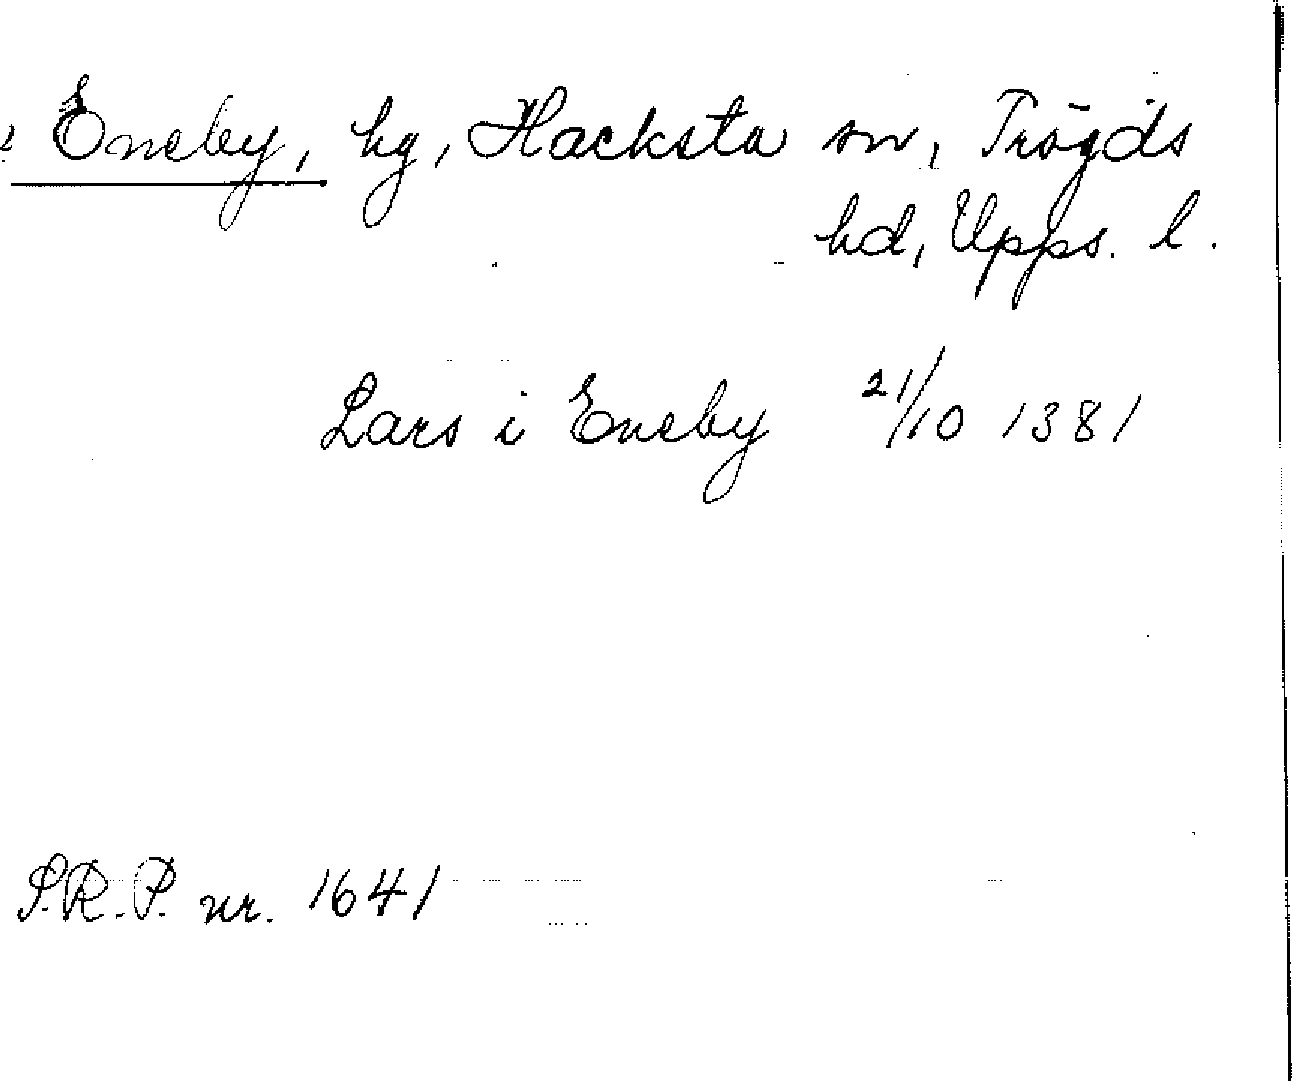 Eneby, hg, Hacksta sn, Trögds
hd, Upps. l.
Lars i Eneby 21/10 1381
S.R.P. nr. 1641